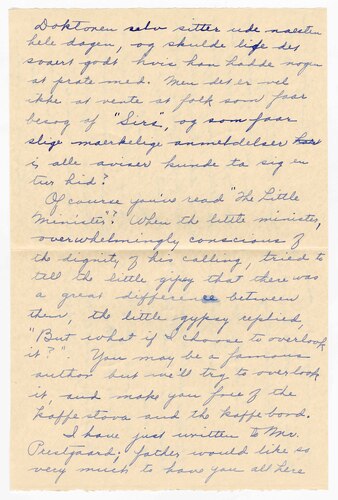 Doktoren selv sitter ude naesten
hele dagen, og skulde lige det
svaert godt hvis han hadde nogen
at prate med. Men det er vel
ikke at vente at folk som faar
besøg af "Sirs", og som faar
slige maerkelige anmeldelser
i alle aviser kunde ta sig en
tur hid?
Of course you've read "The Little
Minister"? When the little minister,
overwhelmingly conscious of
the dignity of his calling, tried to
tell the little gipsy that there was
a great difference between
them, the little gypsy replied,
"But what if I choose to overlook
it?" You may be a famous
author but we'll try to overlook
it, and make you free of the
kaffestova and the kaffebord.
I have just written to Mr.
Prestgaard; father would like so
very much to have you all here